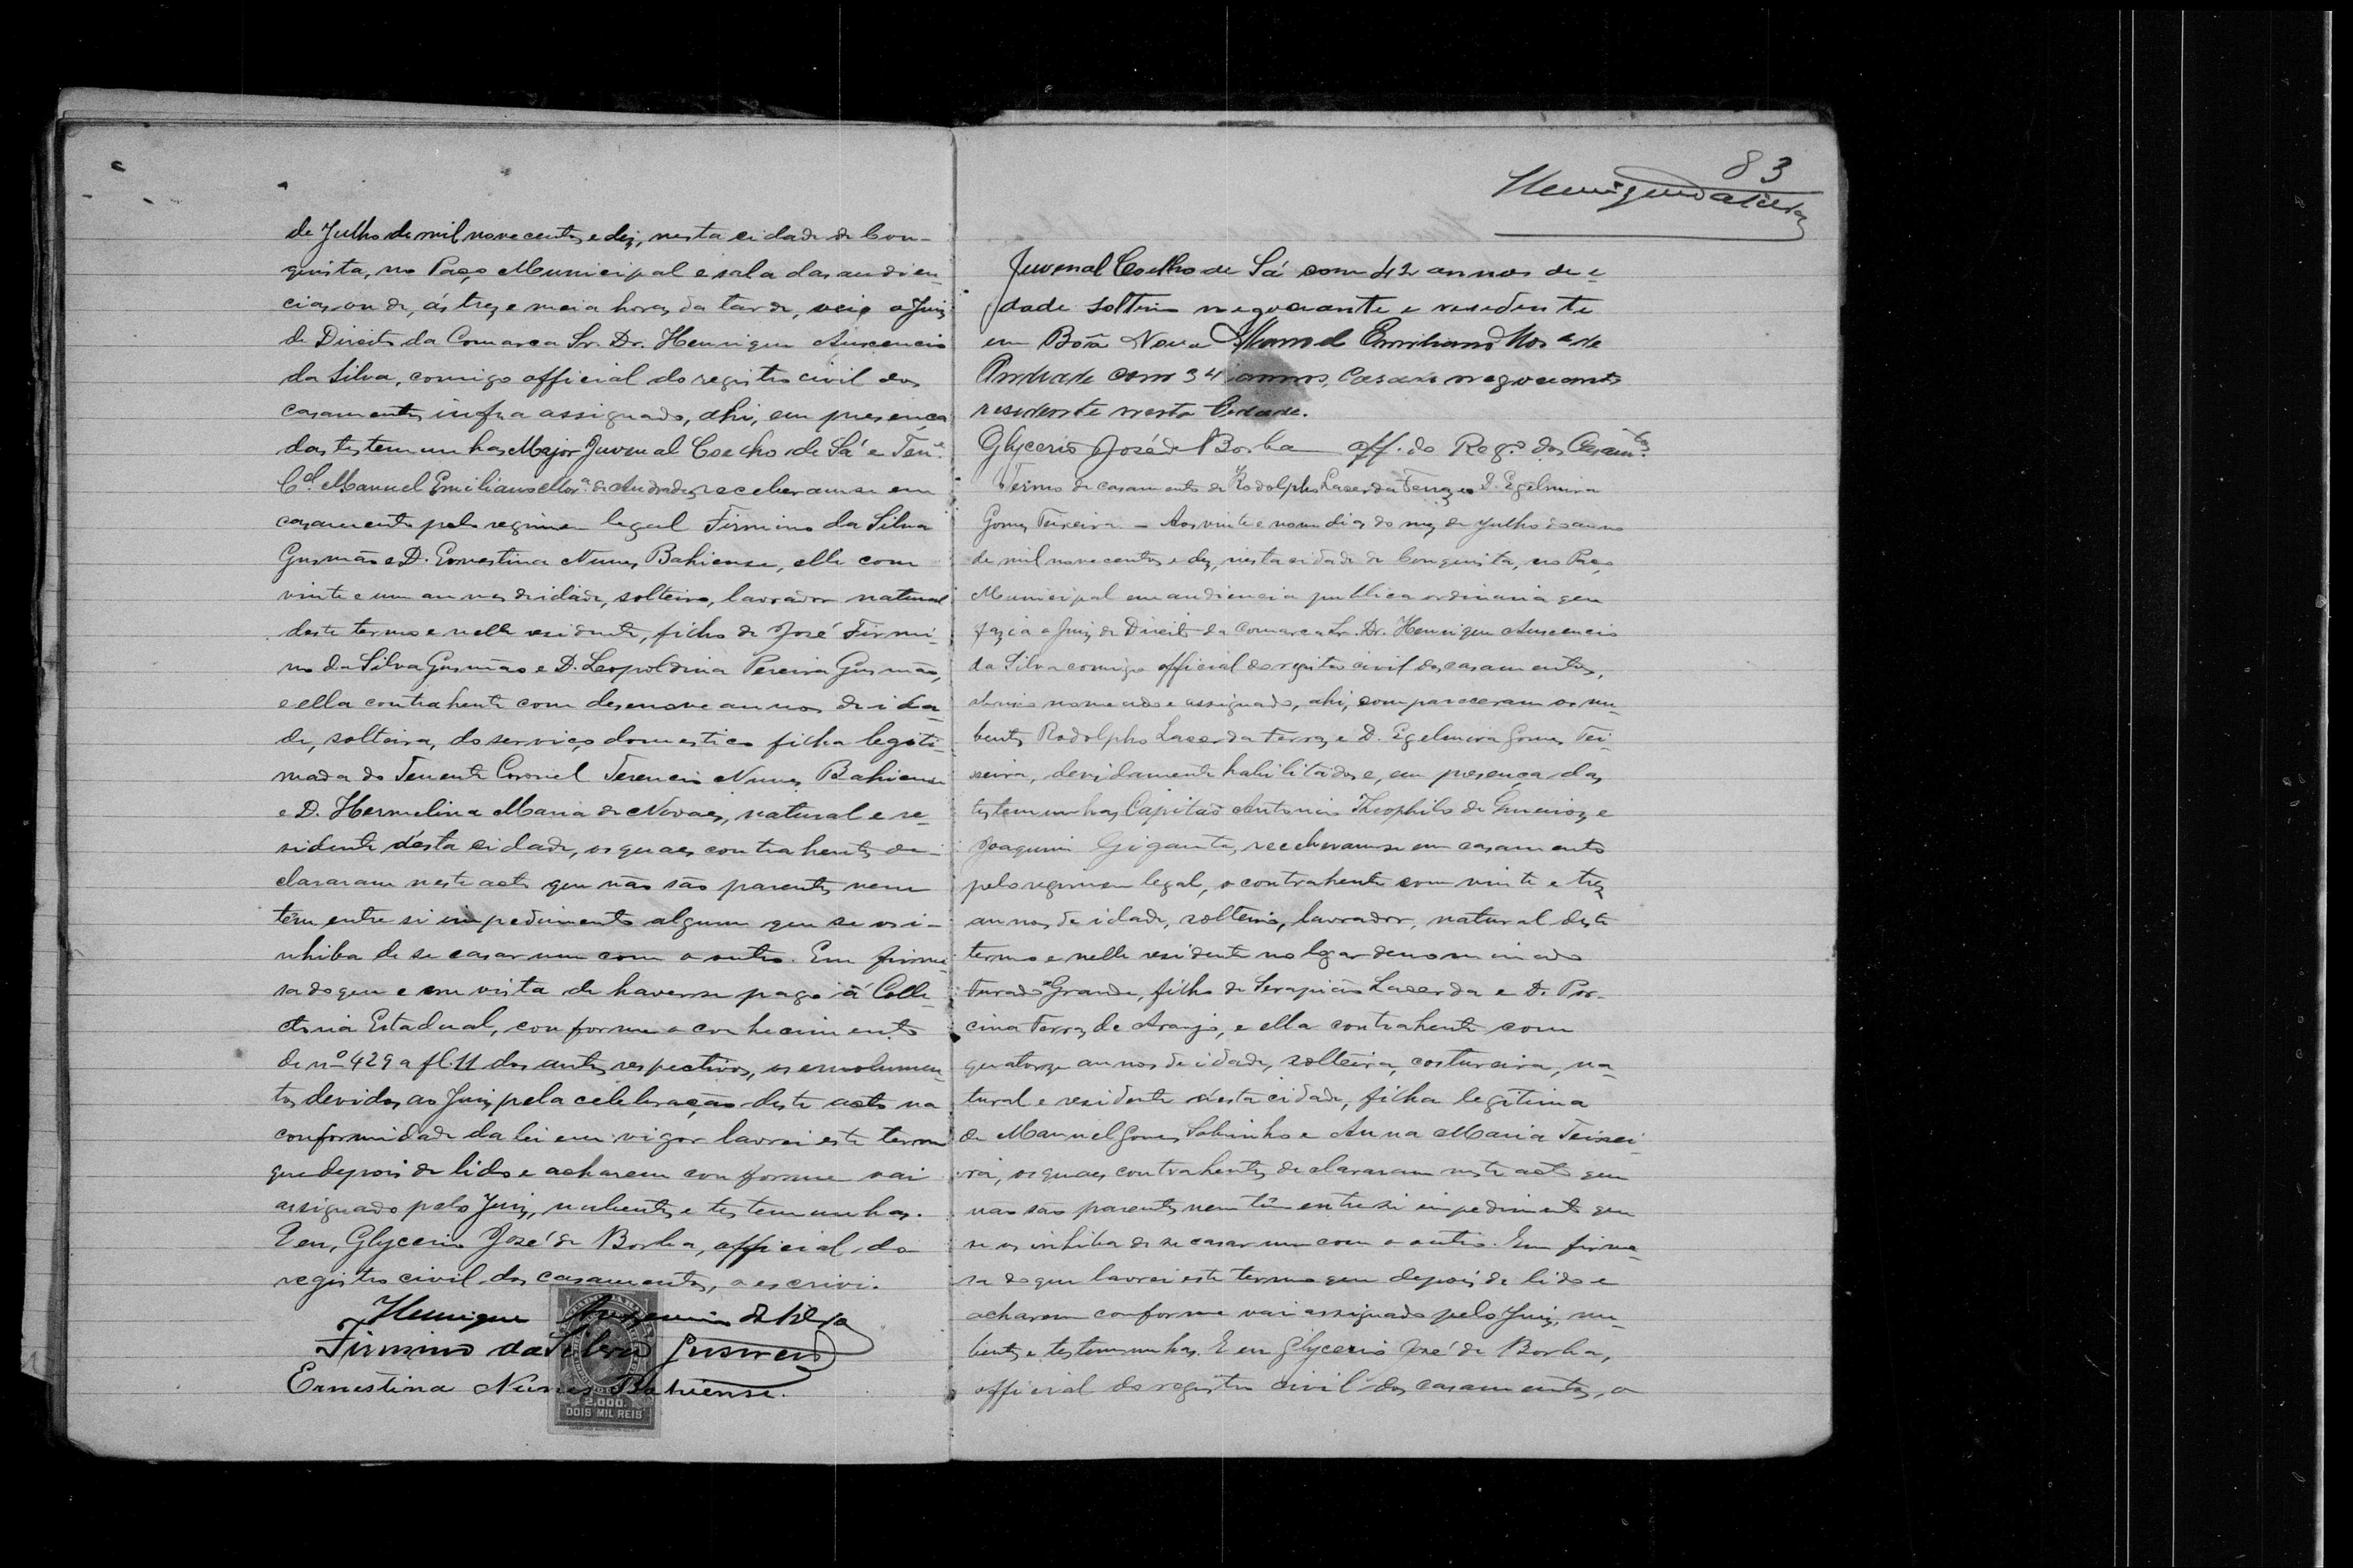 de Julho de mil novecentos e dez, nesta cidade de Con-
quista, no Paço Municipal e sala das audien-
cias, onde, ás trez e meia horas da tarde, veio o Juiz
de Direito da Comarca Sr. Dr. Henrique Auscencio
da Silva, comigo official do registro civil dos
casamentos infra assignado, ahi, em presença
das testemunhas Major Juvenal Coelho de Sá e Tene.
Cel. Manuel Emiliano Mora. de Andrade, receberam-se em
casamento pelo regimen legal Firmino da Silva
Gusmão e D. Ernestina Nunes Bahiense, elle com
vinte e um annos de idade, solteiro, lavrador natural
deste termo e nelle residente, filho de José Firmi-
no da Silva Gusmão e D. Leopoldina Pereira Gusmão,
e ella contrahente com desenove annos de ida-
de, solteira, do serviço domestico filha legiti-
mada do Tenente Coronel Terencio Nunes Bahiense
e D. Hermelina Maria de Novaes, natural e re-
sidente désta cidade, os quaes contrahentes de-
clararam neste acto que não são parentes nem
têm entre si impedimento algum que se os i-
nhiba de se casar um com o outro. Em firme-
sa do que e em vista de haverse pago á Colle-
ctoria Estadual, conforme o conhecimento
de nº 429 a fl. 11 dos autos respectivos, os emolumen-
tos devidos ao Juiz pela celebração deste acto na
conformidade da lei em vigor lavrei este termo
que depois de lido e acharem conforme vai
assignado pelo Juiz, nubentes e testemunhas.
E eu, Glycerio José de Borba, official do
registro civil dos casamentos, o escrivi.
Henrique Auscencio da Silva
Firmino da Silva Gusmão
Ernestina Nunes Bahiense.
2.000.
DOIS MIL REIS
83
Juvenal Coelho de Sá com 42 annos de e-
dade solteiro negociante e residente
em Bôa Nova Manoel Emiliano Mora de
Andrade com 34 annos, Casado negociante
residente nesta Cidade.
Glycerio José de Borba off. do Rego. dos Casamtos.
Termo de casamento de Rodolpho Lacerda Ferraz e D. Egelmira
Gomes Teixeira. - Aos vinte e nove dias do mez de Julho do anno
de mil novecentos e dez, nesta cidade de Conquista, no Paço
Municipal em audiencia publica ordinaria que
fazia o Juiz de Direito da Comarca Sr. Dr. Henrique Auscencio
da Silva comigo official do registro civil dos casamentos,
abaixo nomeado e assignado, ahi, compareceram os nu-
bentes Rodolpho Lacerda Ferraz e D. Egelmira Gomes Tei-
xeira, devidamente habilitados e, em presença das
testemunhas Capitão Antonio Theophilo de e
Joaquim Gigante, receberam-se em casamento
pelo regimen legal, o contrahente com vinte e trez
annos de idade, solteiro, lavrador, natural deste
termo e nelle residente no logar denominado
Furado Grande, filho de Serapião Lacerda e D. Por-
cina Ferraz de Araujo, e ella contrahente com
quatorze annos de idade, solteira, costureira, na-
tural e residente nésta cidade, filha legitima
de Manuel Gomes Sobrinho e Anna Maria Teixei-
ra, os quaes contrahentes declararam neste acto que
não são parentes nem têm entre si impedimento que
se os inhiba de se casar um com o outro. Em firme-
sa do que lavrei este termo que depois de lido e
acharem conforme vai assignado pelo Juiz, nu-
bentes e testemunhas. E eu Glycerio José de Borba,
official do registro civil dos casamentos, o